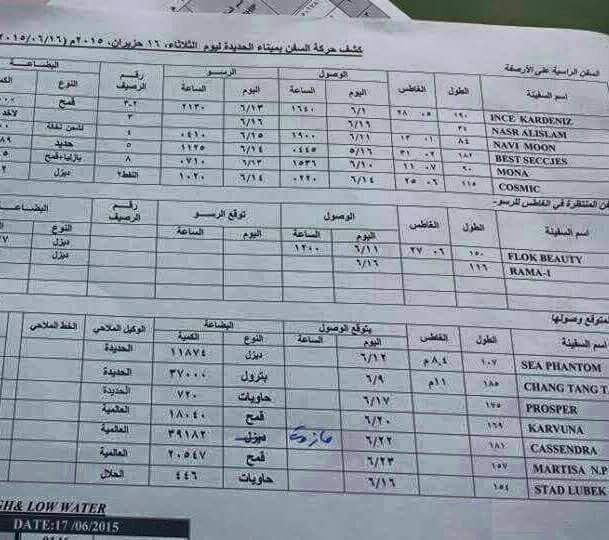 كشف حركة السفن بميناء الحديدة ليوم الثلاثاء، ١٦ حزيران، ٢٠١٥م (٢٠١٥/٠٦/١٦
السفن الراسية على الأرصفة
اسم السفينة الطول الغاطس الوصول الرسو رقم الرصيف البضاعة
اليوم الساعة اليوم الساعة النوع
INCE KARDENIZ ١٩٠ ٠٥ ٢٨ ٦/١ ١٦٤٠ ٦/١٣ ٢١٣٠ ٢-٣ قمح
NASR ALISLAM ٣٤ ٦/١٦ ٦/١٦ ٣
NAVI MOON ٨٤ ٠١ ١٣ ٦/١١ ١٩٠٠ ٦/١٥ ٠٤١٠ ٤
BEST SECCJES ١٨٢ ٠٢ ٣١ ٥/١٦ ٠٤٤٥ ٦/١٤ ١١٢٥ ٥ حديد
MONA ٦٠ ٠٧ ١١ ٦/١٠ ١٥٣٦ ٦/١٣ ٠٧١٠ ٨ بازليا+قمح
COSMIC ١١٥ ٠٦ ٢٥ ٦/١٤ ٠٢٢٠ ٦/١٤ ١٠٢٠ النفط٢ ديزل
المنتظرة في الغاطس للرسو-
اسم السفينة الطول الغاطس الوصول توقع الرسو رقم الرصيف البضاعة
اليوم الساعة اليوم الساعة النوع
FLOK BEAUTY ١٥٠ ٠٦ ٢٧ ٦/١١ ١٢٠٠ ديزل
RAMA-1 ١١٦ ٦/١٦ ديزل
المتوقع وصولها
اسم السفينة الطول الغاطس يتوقع الوصول البضاعة الوكيل الملاحي الخط الملاحي
اليوم الساعة النوع الكمية
SEA PHANTOM ١٠٧ ٨,٤م ٦/١٢ ديزل ١١٨٧٤ الحديدة
CHANG TANG T ١٨٥ ١١م ٦/٩ بترول ٣٧٠٠٠ الحديدة
PROSPER ١٧٥ ٦/١٧ حاويات ٧٢٠ الحديدة
KARVUNA ١٦٩ ٦/٢٠ قمح ١٨٠٤٠ العالمية
CASSENDRA ١٨١ ٦/٢٢ ديزل ٣٩١٨٢ العالمية
MARTISA N.P ١٥٧ ٦/٢٣ قمح ٢٠٥٤٧ العالمية
STAD LUBEK ١٥٤ ٦/١٦ حاويات ٤٤٦ الحلال
GH& LOW WATER
DATE:17 /06/2015